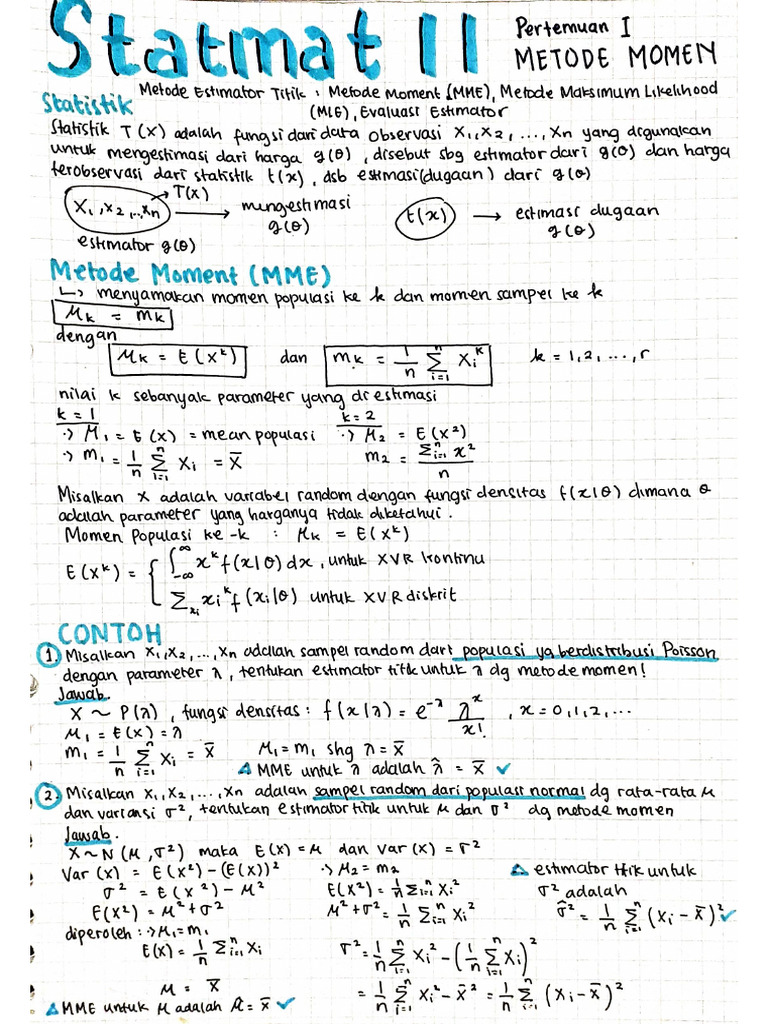 Statmat II
Pertemuan I
METODE MOMEN
Metode Estimator Titik : Metode Moment (MME), Metode Maksimum Likelihood
(MLE), Evaluasi Estimator
Statistik
Statistik T(X) adalah fungsi dari data observasi X₁,X₂,...,Xn yang digunakan
untuk mengestimasi dari harga g(θ), disebut sbg estimator dari g(θ) dan harga
terobservasi dari statistik t(x), dsb estimasi (dugaan) dari g(θ)
X₁,X₂,...,Xn → T(X) → mengestimasi g(θ)
estimator g(θ)
t(x) → estimasi dugaan g(θ)
Metode Moment (MME)
↳ menyamakan momen populasi ke k dan momen sampel ke k
μk = mk
dengan
μk = E(X^k) dan mk = 1/n Σ_{i=1}^{n} Xi^k k = 1,2,...,r
nilai k sebanyak parameter yang di estimasi
k = 1 k = 2
·> μ₁ = E(X) = mean populasi ·> μ₂ = E(X²)
·> m₁ = 1/n Σ_{i=1}^{n} Xi = X̄ m₂ = Σ_{i=1}^{n} x² / n
Misalkan X adalah variabel random dengan fungsi densitas f(x|θ) dimana θ
adalah parameter yang harganya tidak diketahui.
Momen Populasi ke-k : μk = E(X^k)
E(X^k) = { ∫_{-∞}^{∞} x^k f(x|θ) dx, untuk X VR kontinu
Σ_{xi} xi^k f(xi|θ) untuk X VR diskrit
CONTOH
1. Misalkan X₁,X₂,...,Xn adalah sampel random dari populasi yg berdistribusi Poisson
dengan parameter λ, tentukan estimator titik untuk λ dg metode momen!
Jawab.
X ~ P(λ), fungsi densitas : f(x|λ) = e^{-λ} λ^x / x! , x = 0,1,2,...
μ₁ = E(X) = λ
m₁ = 1/n Σ_{i=1}^{n} Xi = X̄ μ₁ = m₁ shg λ = X̄
MME untuk λ adalah λ̂ = X̄ ✓
2. Misalkan X₁,X₂,...,Xn adalah sampel random dari populasi normal dg rata-rata μ
dan variansi σ², tentukan estimator titik untuk μ dan σ² dg metode momen
Jawab.
X ~ N(μ,σ²) maka E(X) = μ dan Var(X) = σ²
Var(X) = E(X²) - (E(X))²
σ² = E(X²) - μ²
E(X²) = μ² + σ²
diperoleh : ·> μ₁ = m₁
E(X) = 1/n Σ_{i=1}^{n} Xi
μ = X̄
MME untuk μ adalah μ̂ = X̄ ✓
·> μ₂ = m₂
E(X²) = 1/n Σ_{i=1}^{n} Xi²
μ² + σ² = 1/n Σ_{i=1}^{n} Xi²
σ² = 1/n Σ_{i=1}^{n} Xi² - (1/n Σ_{i=1}^{n} Xi)²
= 1/n Σ_{i=1}^{n} Xi² - X̄² = 1/n Σ_{i=1}^{n} (Xi - X̄)²
estimator titik untuk
σ² adalah
σ̂² = 1/n Σ_{i=1}^{n} (Xi - X̄)² ✓